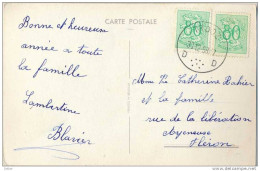 CARTE POSTALE
Bonne et heureuse
année a toute
la famille
Lambertine
Blavier
80
80
D D
Catherine
et la famille
rue de la libération
Héron